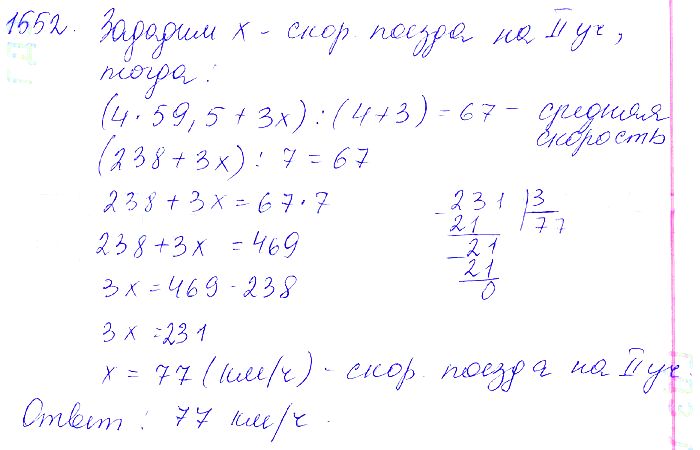 1552. Зададим x - скор. поезда на II уч,
тогда:
(4·59,5+3x):(4+3)=67 - средняя
скорость
(238+3x):7=67
238+3x=67·7
238+3x=469
3x=469-238
3x=231
x=77 (км/ч) - скор. поезда на II уч.
Ответ: 77 км/ч.
-231 | 3
21 77
-21
21
0